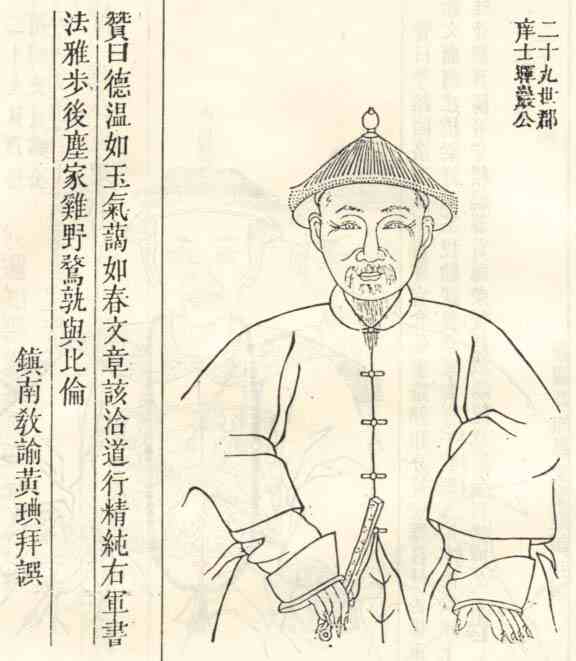 二十九世郡
庠士公
贊曰德温如玉氣藹如春文章該洽道行精純右軍書
法雅步後塵家雞野鶩孰與比倫
鎮南敎諭黃琠拜譔